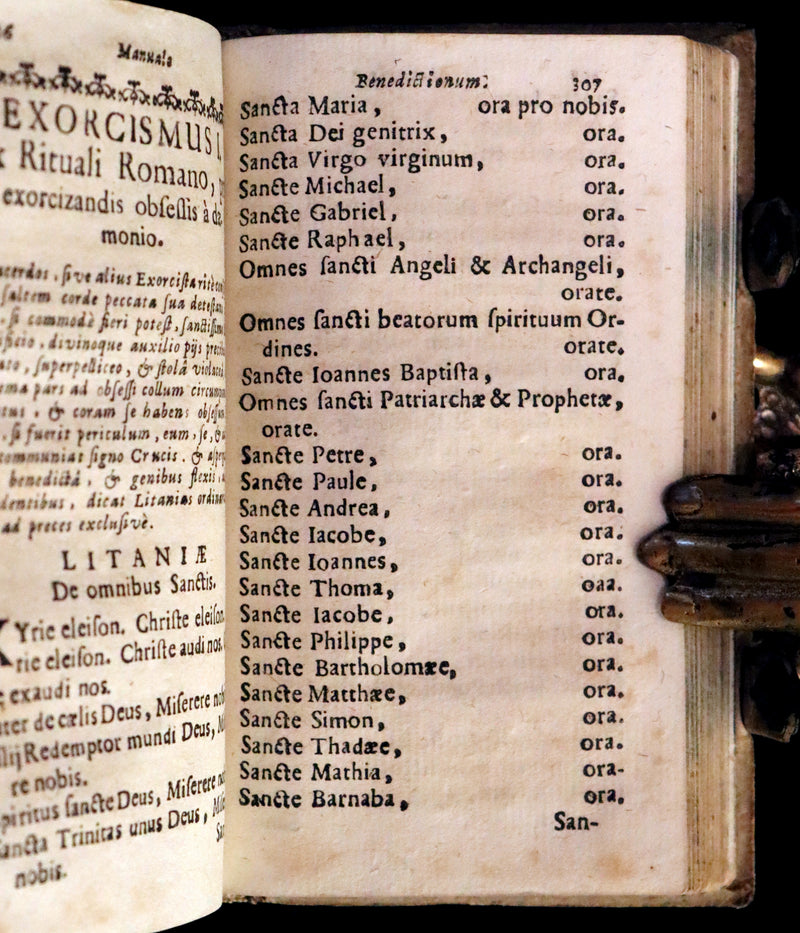 Manuale
EXORCISMUS I.
Rituali Romano,
exorcizandis obſeſſis à dæ
monio.
ſive alius Exorciſta ritè
ſaltem corde peccata ſua
ſi commodè fieri poteſt, ſanctiſſimo
divinoque auxilio pijs
ſuperpelliceo, & ſtolâ
pars ad obſeſſi collum
& coram ſe habens
ſi fuerit periculum, eum, ſe, &
ſigno Crucis. &
benedictâ, & genibus flexis,
dicat Litanias
ad preces excluſivè.
LITANIÆ
De omnibus Sanctis.
Yrie eleiſon. Chriſte
eleiſon. Chriſte audi nos.
exaudi nos.
de cælis Deus, Miſerere
Redemptor mundi Deus,
re nobis.
ſancte Deus, Miſerere
Trinitas unus Deus,
nobis.
Benedictionum. 307
Sancta Maria, ora pro nobis.
Sancta Dei genitrix, ora.
Sancta Virgo virginum, ora.
Sancte Michael, ora.
Sancte Gabriel, ora.
Sancte Raphael, ora.
Omnes ſancti Angeli & Archangeli,
orate.
Omnes ſancti beatorum ſpirituum Or-
dines. orate.
Sancte Ioannes Baptiſta, ora.
Omnes ſancti Patriarchæ & Prophetæ,
orate.
Sancte Petre, ora.
Sancte Paule, ora.
Sancte Andrea, ora.
Sancte Iacobe, ora.
Sancte Ioannes, ora.
Sancte Thoma, oaa.
Sancte Iacobe, ora.
Sancte Philippe, ora.
Sancte Bartholomæe, ora.
Sancte Matthæe, ora.
Sancte Simon, ora.
Sancte Thadæe, ora.
Sancte Mathia, ora-
Sancte Barnaba, ora.
San-